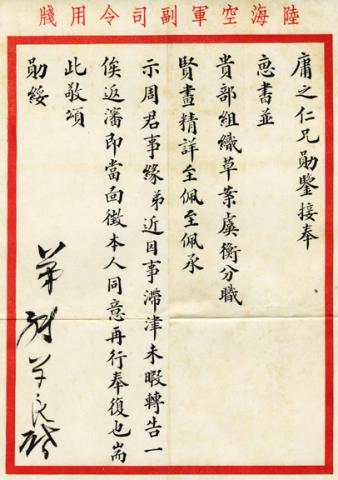 陸海空軍副司令用牋
庸之仁兄勛鑒接奉
惠書並
貴部組織草案虞衡分職
賢畫精詳至佩至佩承
示周君事緣弟近因事滯津未暇轉告一
俟返瀋即當面徵本人同意再行奉復也耑
此敬頌
勛綏
弟張學良啓